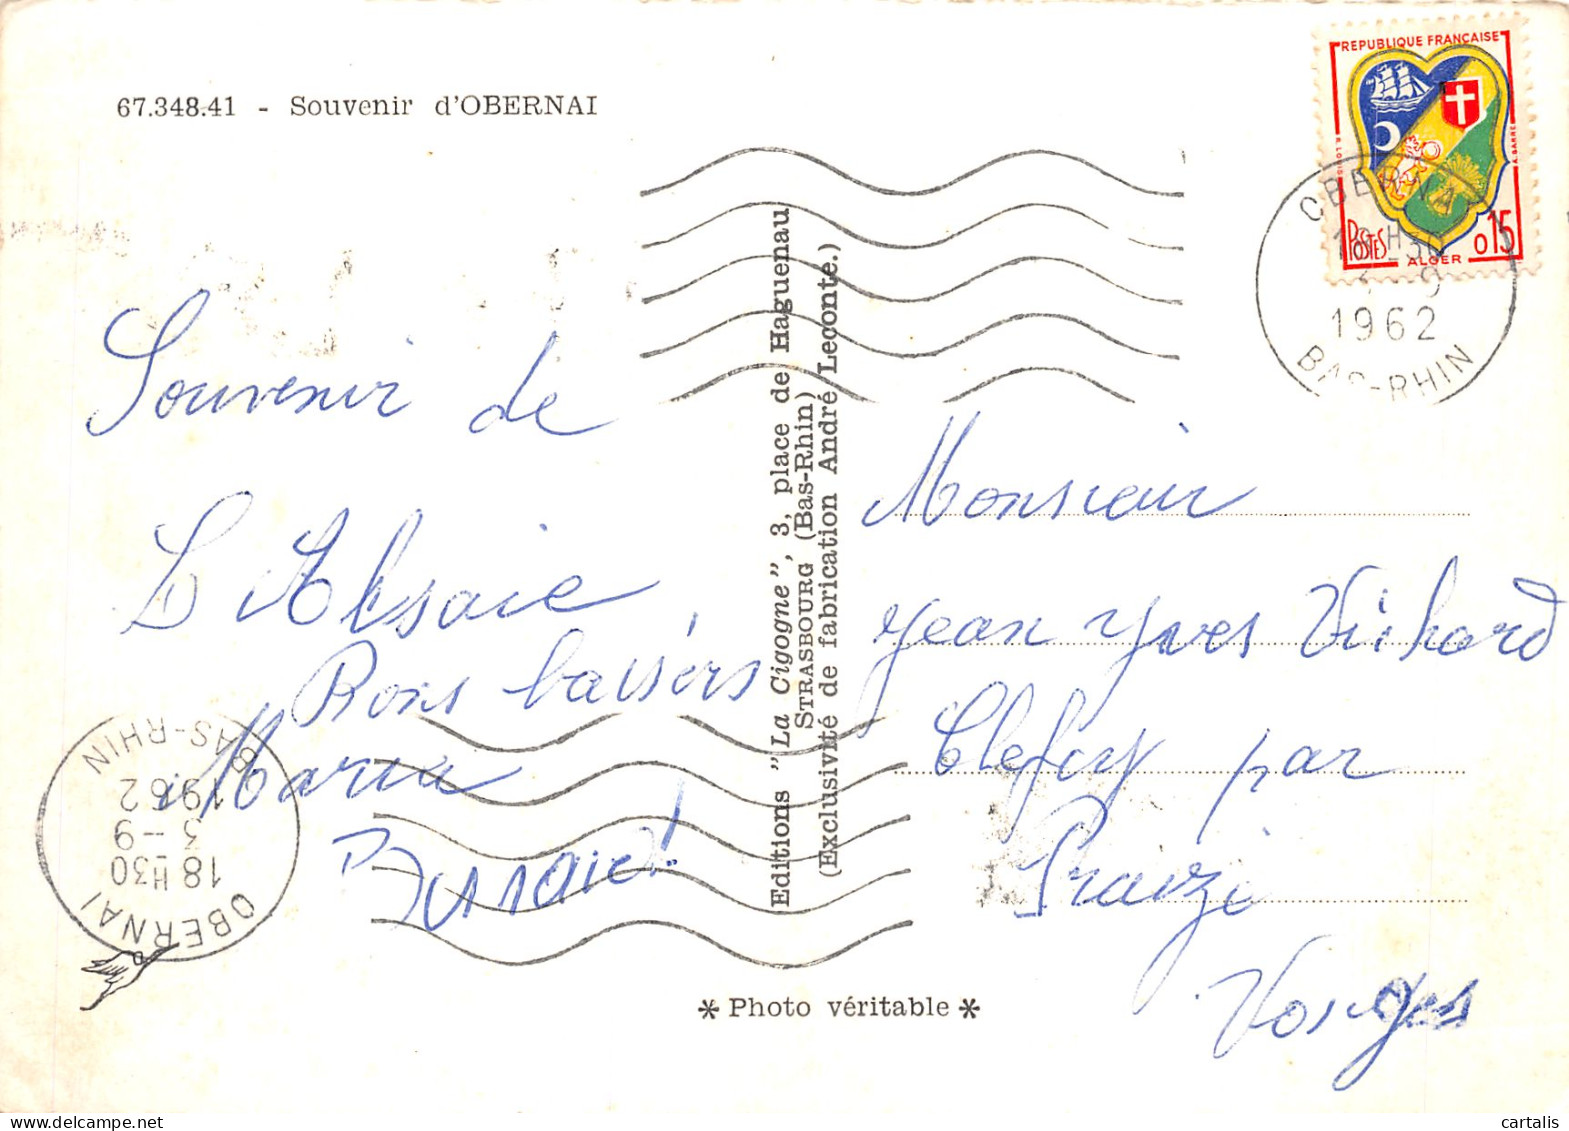 67.348.41 - Souvenir d'OBERNAI
REPUBLIQUE FRANÇAISE
POSTES
ALGER
0 15
OBERNAI
18 H30
3 - 9
1962
BAS-RHIN
Souvenir de
L'Alsaie
Bons baisers
Marie
Editions "La Cigogne", 3, place de Haguenau
STRASBOURG (Bas-Rhin)
(Exclusivité de fabrication André Leconte.)
Monsieur
Jean Yves Vichard
Clefcy par
Fraize
Vosges
OBERNAI
18 H30
3 - 9
1962
BAS-RHIN
* Photo véritable *
cartalis